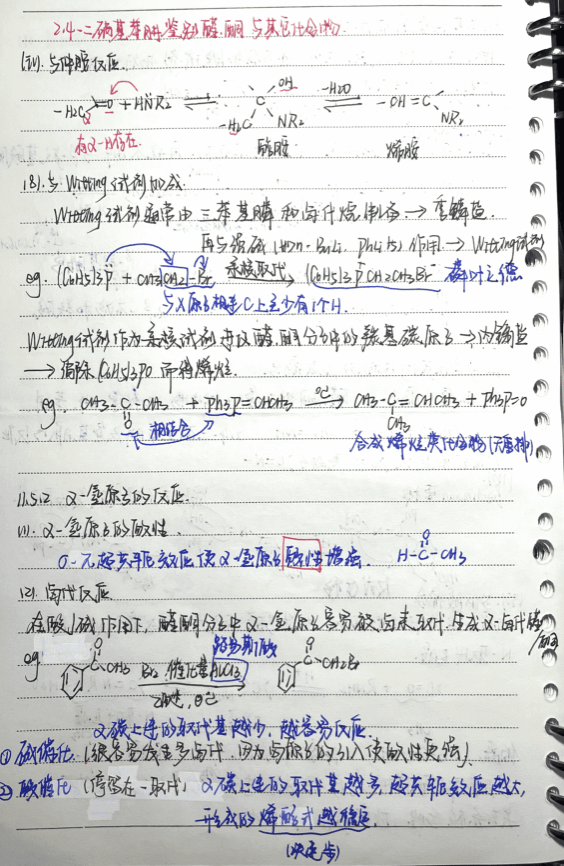 2.4-二硝基苯肼鉴别醛.酮与其它化合物.
(iv). 与仲胺反应.
-H2C C=O + HNR2 ⇌ -H2C C OH NR2 ⇌ -H2O -CH=C NR2
有α-H存在. 醇胺 烯胺
(8).与Witting试剂加成.
Witting试剂通常由三苯基膦和卤代烷制备→季鏻盐.
再与强碱(如n-BuLi. PhLi等)作用→Witting试剂
eg. (C6H5)3P + CH3CH2-Br 亲核取代→ (C6H5)3P CH2CH3Br 磷叶立德
与X原子相连C上至少有1个H.
Witting试剂作为亲核试剂进攻醛.酮分子中的羰基碳原子→内鎓盐
→消除(C6H5)3PO 而得烯烃.
eg. CH3-C-CH3 + Ph3P=CHCH3 0℃→ CH3-C=CHCH3 + Ph3P=O
O 相结合 CH3 合成烯烃类化合物(无重排)
11.5.2 α-氢原子的反应.
(1). α-氢原子的酸性.
σ-π超共轭效应使α-氢原子酸性增强. H-C-CH3 O
(2). 卤代反应.
在酸/碱作用下, 醛酮分子中α-氢原子容易被卤素取代.生成α-卤代醛/酮
路易斯酸
eg C O CH3 Br2 .催化量AlCl3 乙醚, 0℃ → C O CH2Br
α碳上连的取代基越少, 越容易反应.
① 碱催化. (很容易发生多卤代. 因为卤原子的引入使酸性更强)
② 酸催化 (停留在一取代) α碳上连的取代基越多, 超共轭效应越大,
形成的烯醇式越稳定.
(决定步)